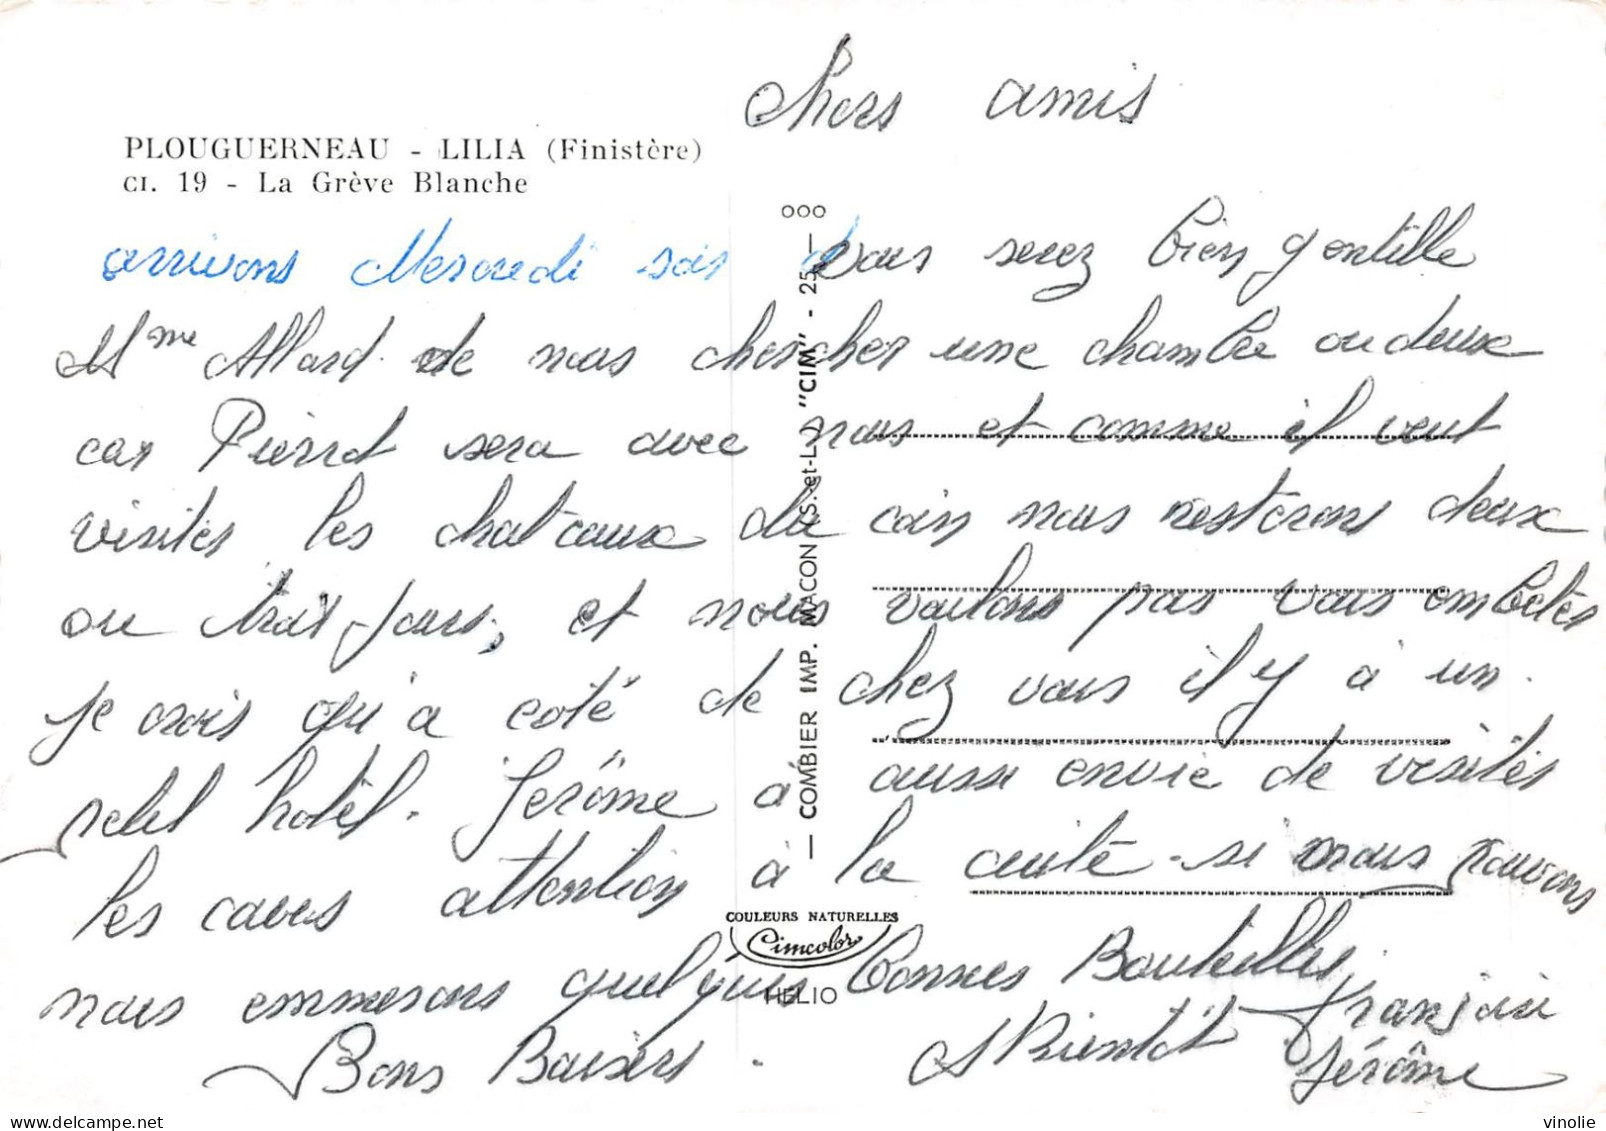 Chers amis
PLOUGUERNEAU - LILIA (Finistère)
CI. 19 - La Grève Blanche
000
arrivons Mercredi soir
vous serez bien gentille
Mme Allard de nous chercher une chambre ou deux
car Pierrot sera avec nous et comme il veut
visiter les chateaux du coin nous resterons deux
ou trois jours, et nous voulons pas vous embeter
je crois qu'a coté de chez vous il y à un
petit hotel. Jérôme à aussi envie de visiter
les caves attention à la cuite - si nous pouvons
nous emmerons quelques bonnes Bouteilles,
Bons Baisers. A Bientôt Françoise
Jérôme
— COMBIER IMP. MACON (S.-et-L.) "CIM" - 25 —
COULEURS NATURELLES
Cimcolor
HELIO
vinolie